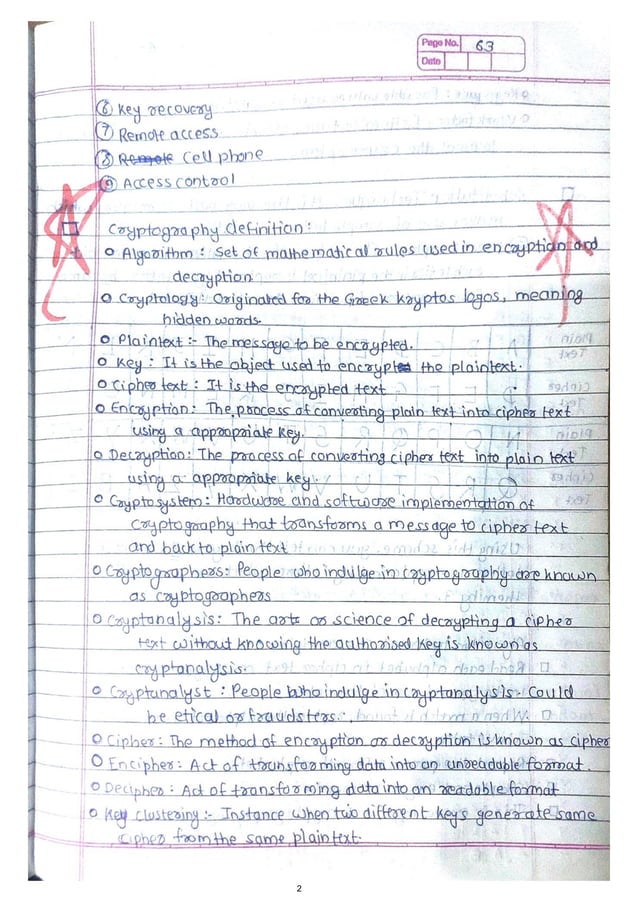 Page No. 63
Date
⑥ Key recovery
⑦ Remote access
⑧ Remote Cell phone
⑨ Access control
Cryptography definition:
o Algorithm : Set of mathematical rules used in encryption and
decryption
o Cryptology: Originated for the Greek kryptos logos, meaning
hidden words.
o Plaintext :- The message to be encrypted.
o Key : It is the object used to encrypt the plaintext.
o Cipher text : It is the encrypted text
o Encryption: The process of converting plain text into cipher text
using a appropriate key.
o Decryption: The process of converting cipher text into plain text
using a appropriate key.
o Cryptosystem: Hardware and software implementation of
cryptography that transforms a message to cipher text
and back to plain text
o Cryptographers: People who indulge in cryptography are known
as cryptographers
o Cryptanalysis: The arts or science of decrypting a cipher
text without knowing the authorised key is known as
cryptanalysis.
o Cryptanalyst : People who indulge in cryptanalysis. Could
be etical or fraudsters.
o Cipher: The method of encryption or decryption is known as cipher
o Encipher: Act of transforming data into an unreadable format.
o Decipher: Act of transforming data into an readable format
o Key Clustering :- Instance when two different keys generate same
cipher from the same plaintext.
2